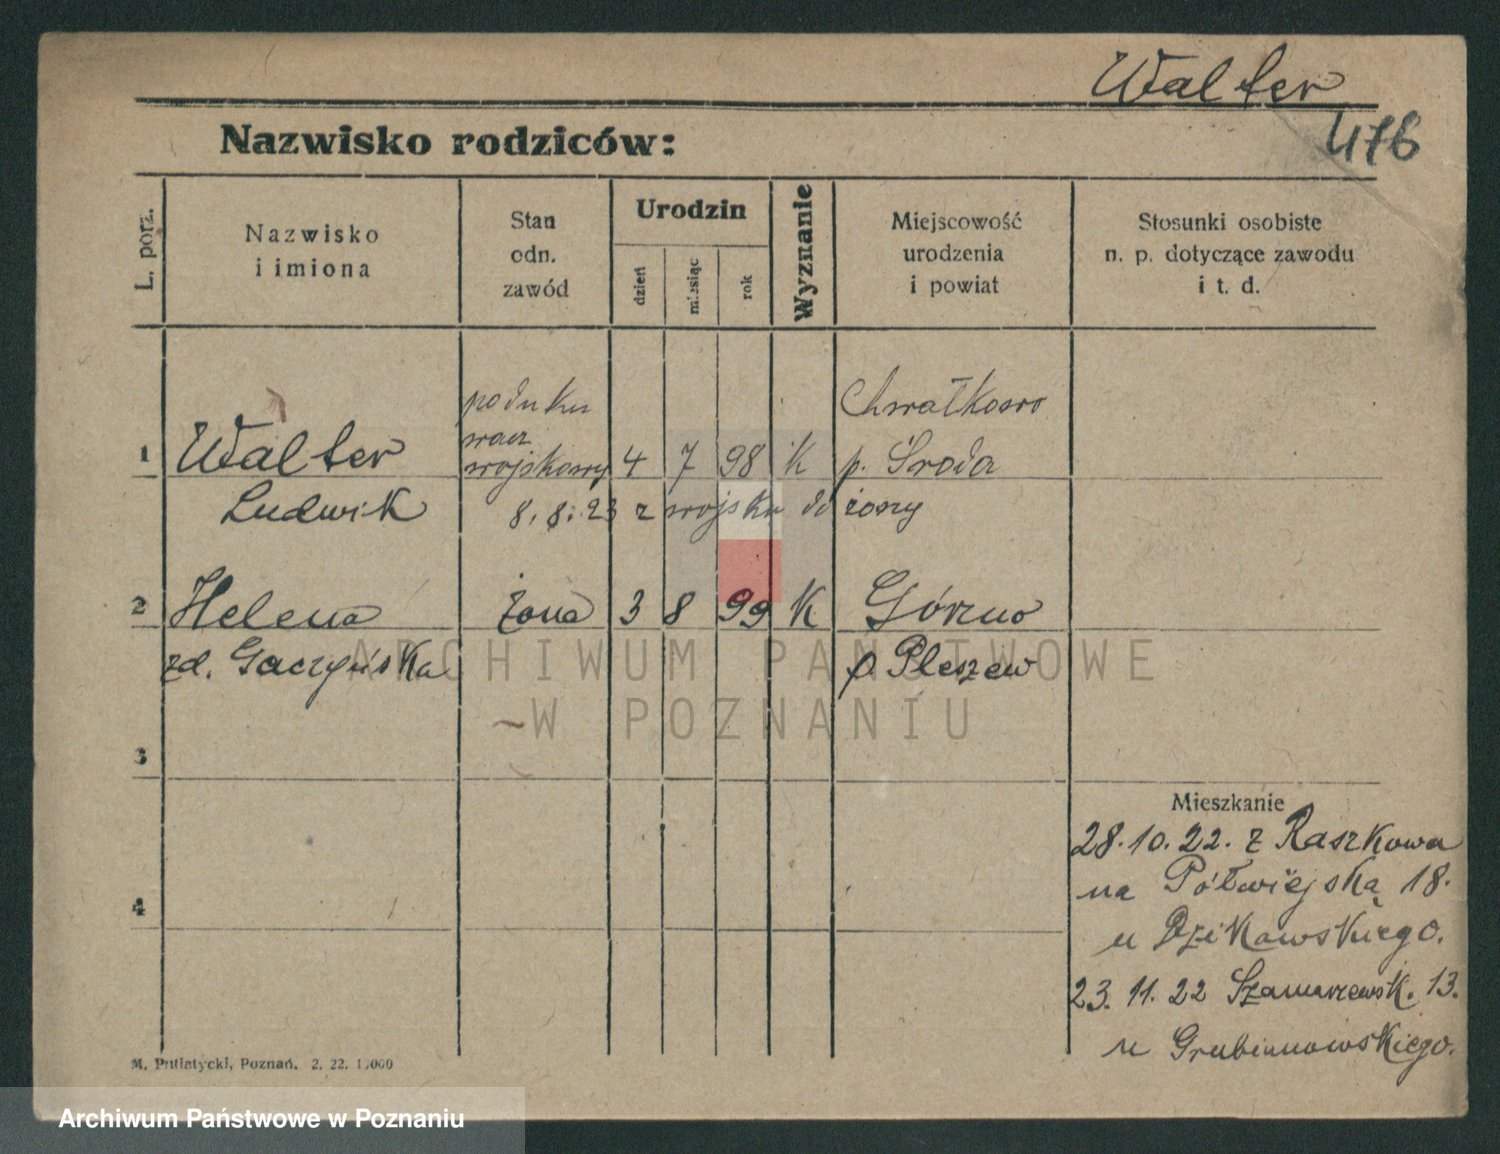 Walter
476
Nazwisko rodziców:
L. porz.
Nazwisko
i imiona
Stan
odn.
zawód
Urodzin
dzień
miesiąc
rok
Wyznanie
Miejscowość
urodzenia
i powiat
Stosunki osobiste
n. p. dotyczące zawodu
i t. d.
1 Walter
Ludwik
wojskowy
4 7 98 k
Chwałkowo
p. Środa
8. 8. 23 z wojska do żony
2 Helena żona 3 8 99 k Górzno
zd. Gaczyńska p Pleszew
3
4
Mieszkanie
28.10.22. z Raszkowa
na Półwiejską 18.
u Dzikowskiego.
23. 11. 22 Szamarzewsk. 13.
u
M. Putiatycki, Poznań. 2. 22.
ARCHIWUM PAŃSTWOWE
W POZNANIU
Archiwum Państwowe w Poznaniu